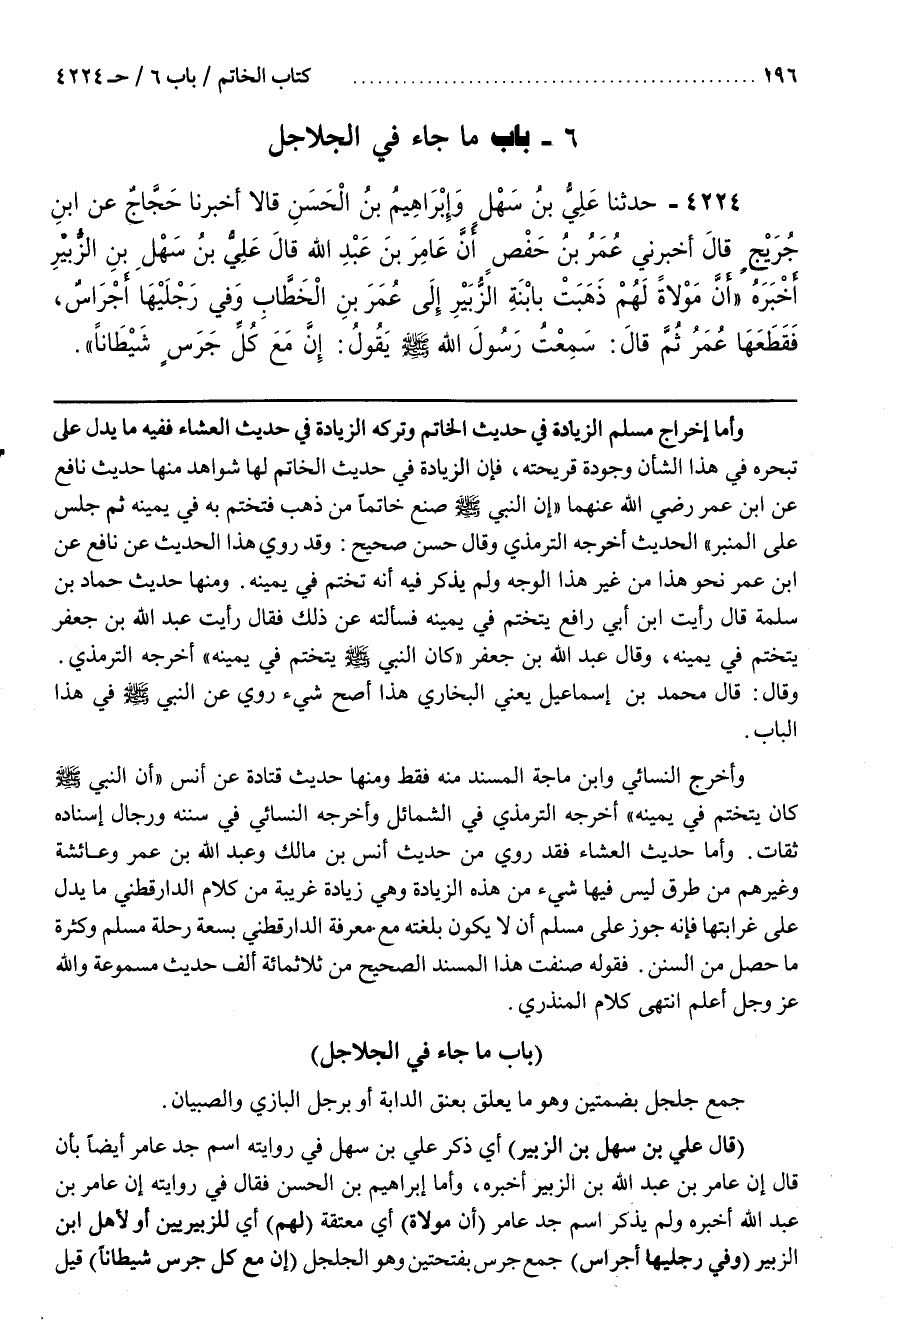 ١٩٦ ................................................ كتاب الخاتم / باب ٦ / حـ ٤٢٢٤
٦ - باب ما جاء في الجلاجل
٤٢٢٤ - حدثنا عَلِيُّ بنُ سَهْلٍ وَإِبْرَاهِيمُ بنُ الْحَسَنِ قالا أخبرنا حَجَّاجٌ عن ابنِ
جُرَيْجٍ قالَ أخبرني عُمَرُ بنُ حَفْصٍ أَنَّ عَامِرَ بنَ عَبْدِ الله قالَ عَلِيُّ بنُ سَهْلِ بنِ الزُّبَيْرِ
أَخْبَرَهُ «أَنَّ مَوْلاَةً لَهُمْ ذَهَبَتْ بابْنَةِ الزُّبَيْرِ إِلَى عُمَرَ بنِ الْخَطَّابِ وَفي رِجْلَيْهَا أَجْرَاسٌ،
فَقَطَعَهَا عُمَرُ ثُمَّ قالَ: سَمِعْتُ رَسُولَ الله ﷺ يَقُولُ: إِنَّ مَعَ كُلِّ جَرَسٍ شَيْطَاناً».
وأما إخراج مسلم الزيادة في حديث الخاتم وتركه الزيادة في حديث العشاء ففيه ما يدل على
تبحره في هذا الشأن وجودة قريحته، فإن الزيادة في حديث الخاتم لها شواهد منها حديث نافع
عن ابن عمر رضي الله عنهما «إن النبي ﷺ صنع خاتماً من ذهب فتختم به في يمينه ثم جلس
على المنبر» الحديث أخرجه الترمذي وقال حسن صحيح: وقد روي هذا الحديث عن نافع عن
ابن عمر نحو هذا من غير هذا الوجه ولم يذكر فيه أنه تختم في يمينه. ومنها حديث حماد بن
سلمة قال رأيت ابن أبي رافع يتختم في يمينه فسألته عن ذلك فقال رأيت عبد الله بن جعفر
يتختم في يمينه، وقال عبد الله بن جعفر «كان النبي ﷺ يتختم في يمينه» أخرجه الترمذي.
وقال: قال محمد بن إسماعيل يعني البخاري هذا أصح شيء روي عن النبي ﷺ في هذا
الباب.
وأخرج النسائي وابن ماجة المسند منه فقط ومنها حديث قتادة عن أنس «أن النبي ﷺ
كان يتختم في يمينه» أخرجه الترمذي في الشمائل وأخرجه النسائي في سننه ورجال إسناده
ثقات. وأما حديث العشاء فقد روي من حديث أنس بن مالك وعبد الله بن عمر وعائشة
وغيرهم من طرق ليس فيها شيء من هذه الزيادة وهي زيادة غريبة من كلام الدارقطني ما يدل
على غرابتها فإنه جوز على مسلم أن لا يكون بلغته مع معرفة الدارقطني بسعة رحلة مسلم وكثرة
ما حصل من السنن. فقوله صنفت هذا المسند الصحيح من ثلاثمائة ألف حديث مسموعة والله
عز وجل أعلم انتهى كلام المنذري.
(باب ما جاء في الجلاجل)
جمع جلجل بضمتين وهو ما يعلق بعنق الدابة أو برجل البازي والصبيان.
(قال علي بن سهل بن الزبير) أي ذكر علي بن سهل في روايته اسم جد عامر أيضاً بأن
قال إن عامر بن عبد الله بن الزبير أخبره، وأما إبراهيم بن الحسن فقال في روايته إن عامر بن
عبد الله أخبره ولم يذكر اسم جد عامر (أن مولاة) أي معتقة (لهم) أي للزبيريين أو لأهل ابن
الزبير (وفي رجليها أجراس) جمع جرس بفتحتين وهو الجلجل (إن مع كل جرس شيطاناً) قيل